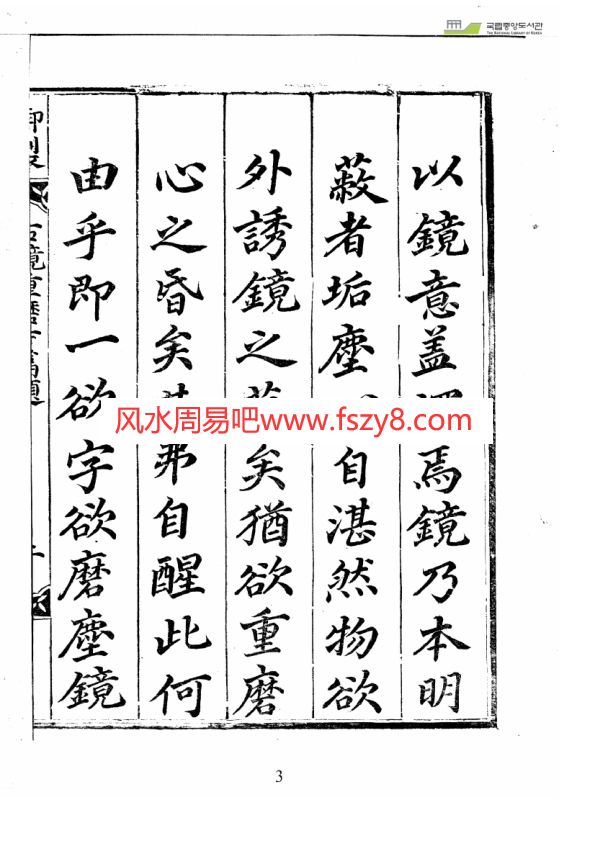 국립중앙도서관
THE NATIONAL LIBRARY OF KOREA
以鏡意盖焉鏡乃本明
蔽者垢塵自湛然物欲
外誘鏡之矣猶欲重磨
心之昏矣弗自醒此何
由乎即一欲字欲磨塵鏡
御製
古鏡重磨方篇題
风水周易吧www.fszy8.com
3